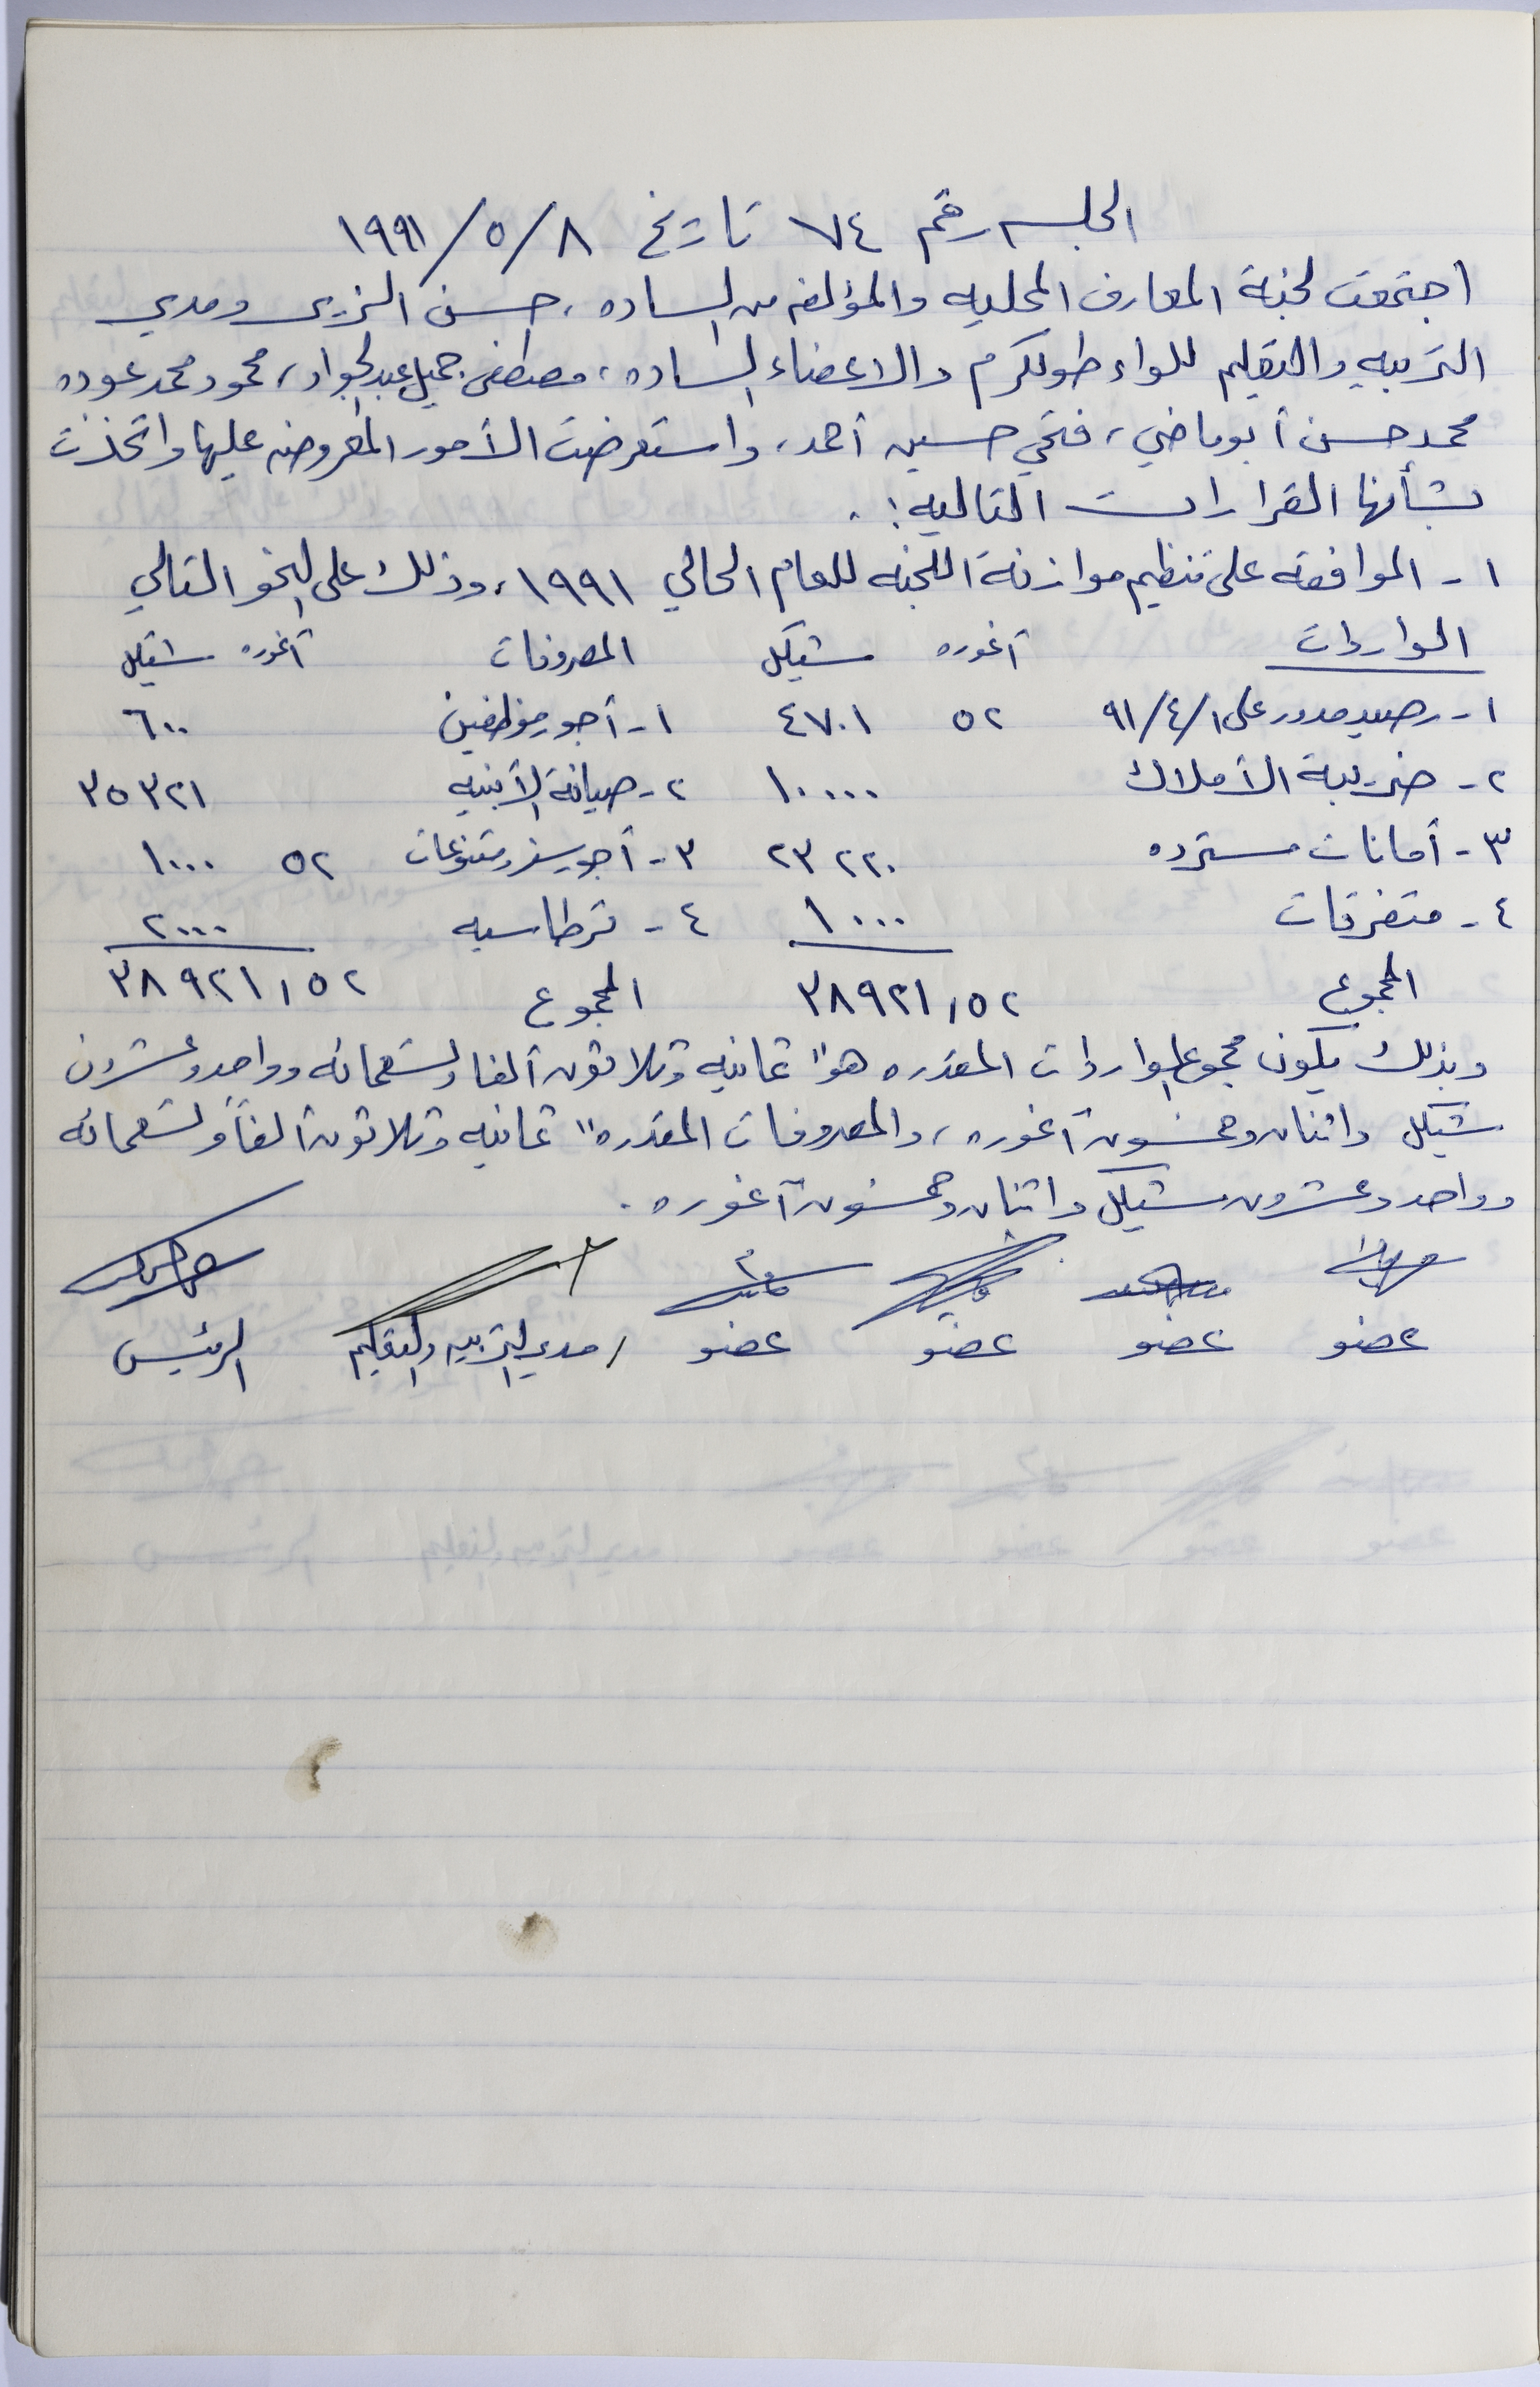 الجلسه رقم ٧٤ تاريخ ٨/٥/١٩٩١
اجتمعت لجنة المعارف المحليه والمؤلفه من الساده، حسن الزير ومدير
التربيه والتعليم للواء طولكرم والاعضاء الساده، مصطفى جميل عبد الجواد، محمود محمد عوده
محمد حسن أبوماضي، فتحي حسين أحمد، واستعرضت الأمور المعروضه عليها واتخذت
بشأنها القرارات التاليه:
١- الموافقه على تنظيم موازنة اللجنه للعام الحالي ١٩٩١، وذلك على النحو التالي
الواردات آغوره شيكل المصروفات آغوره شيكل
١- رصيد مدور على ٩١/٤/١ ٥٢ ٤٧٠١ ١- أجور موظفين ٦٠٠
٢- ضريبة الأملاك ١٠٠٠٠ ٢- صيانة الأبنيه ٣٥٣٢١
٣- أمانات مسترده ٢٣٢٢٠ ٣- أجور سفر ومتنوعات ٥٢ ١٠٠٠
٤- متفرقات ١٠٠٠ ٤- قرطاسيه ٢٠٠٠
المجموع ٣٨٩٢١,٥٢ المجموع ٣٨٩٢١,٥٢
وبذلك يكون مجموع الواردات المقدره هو" ثمانيه وثلاثون ألفا وتسعمائه وواحد وعشرون
شيكل واثنان وخمسون آغوره، والمصروفات المقدره" ثمانيه وثلاثون ألفاً وتسعمائه
وواحد وعشرون شيكل واثنان وخمسون آغوره.
عضو عضو عضو عضو / مدير التربيه والتعليم الرئيس